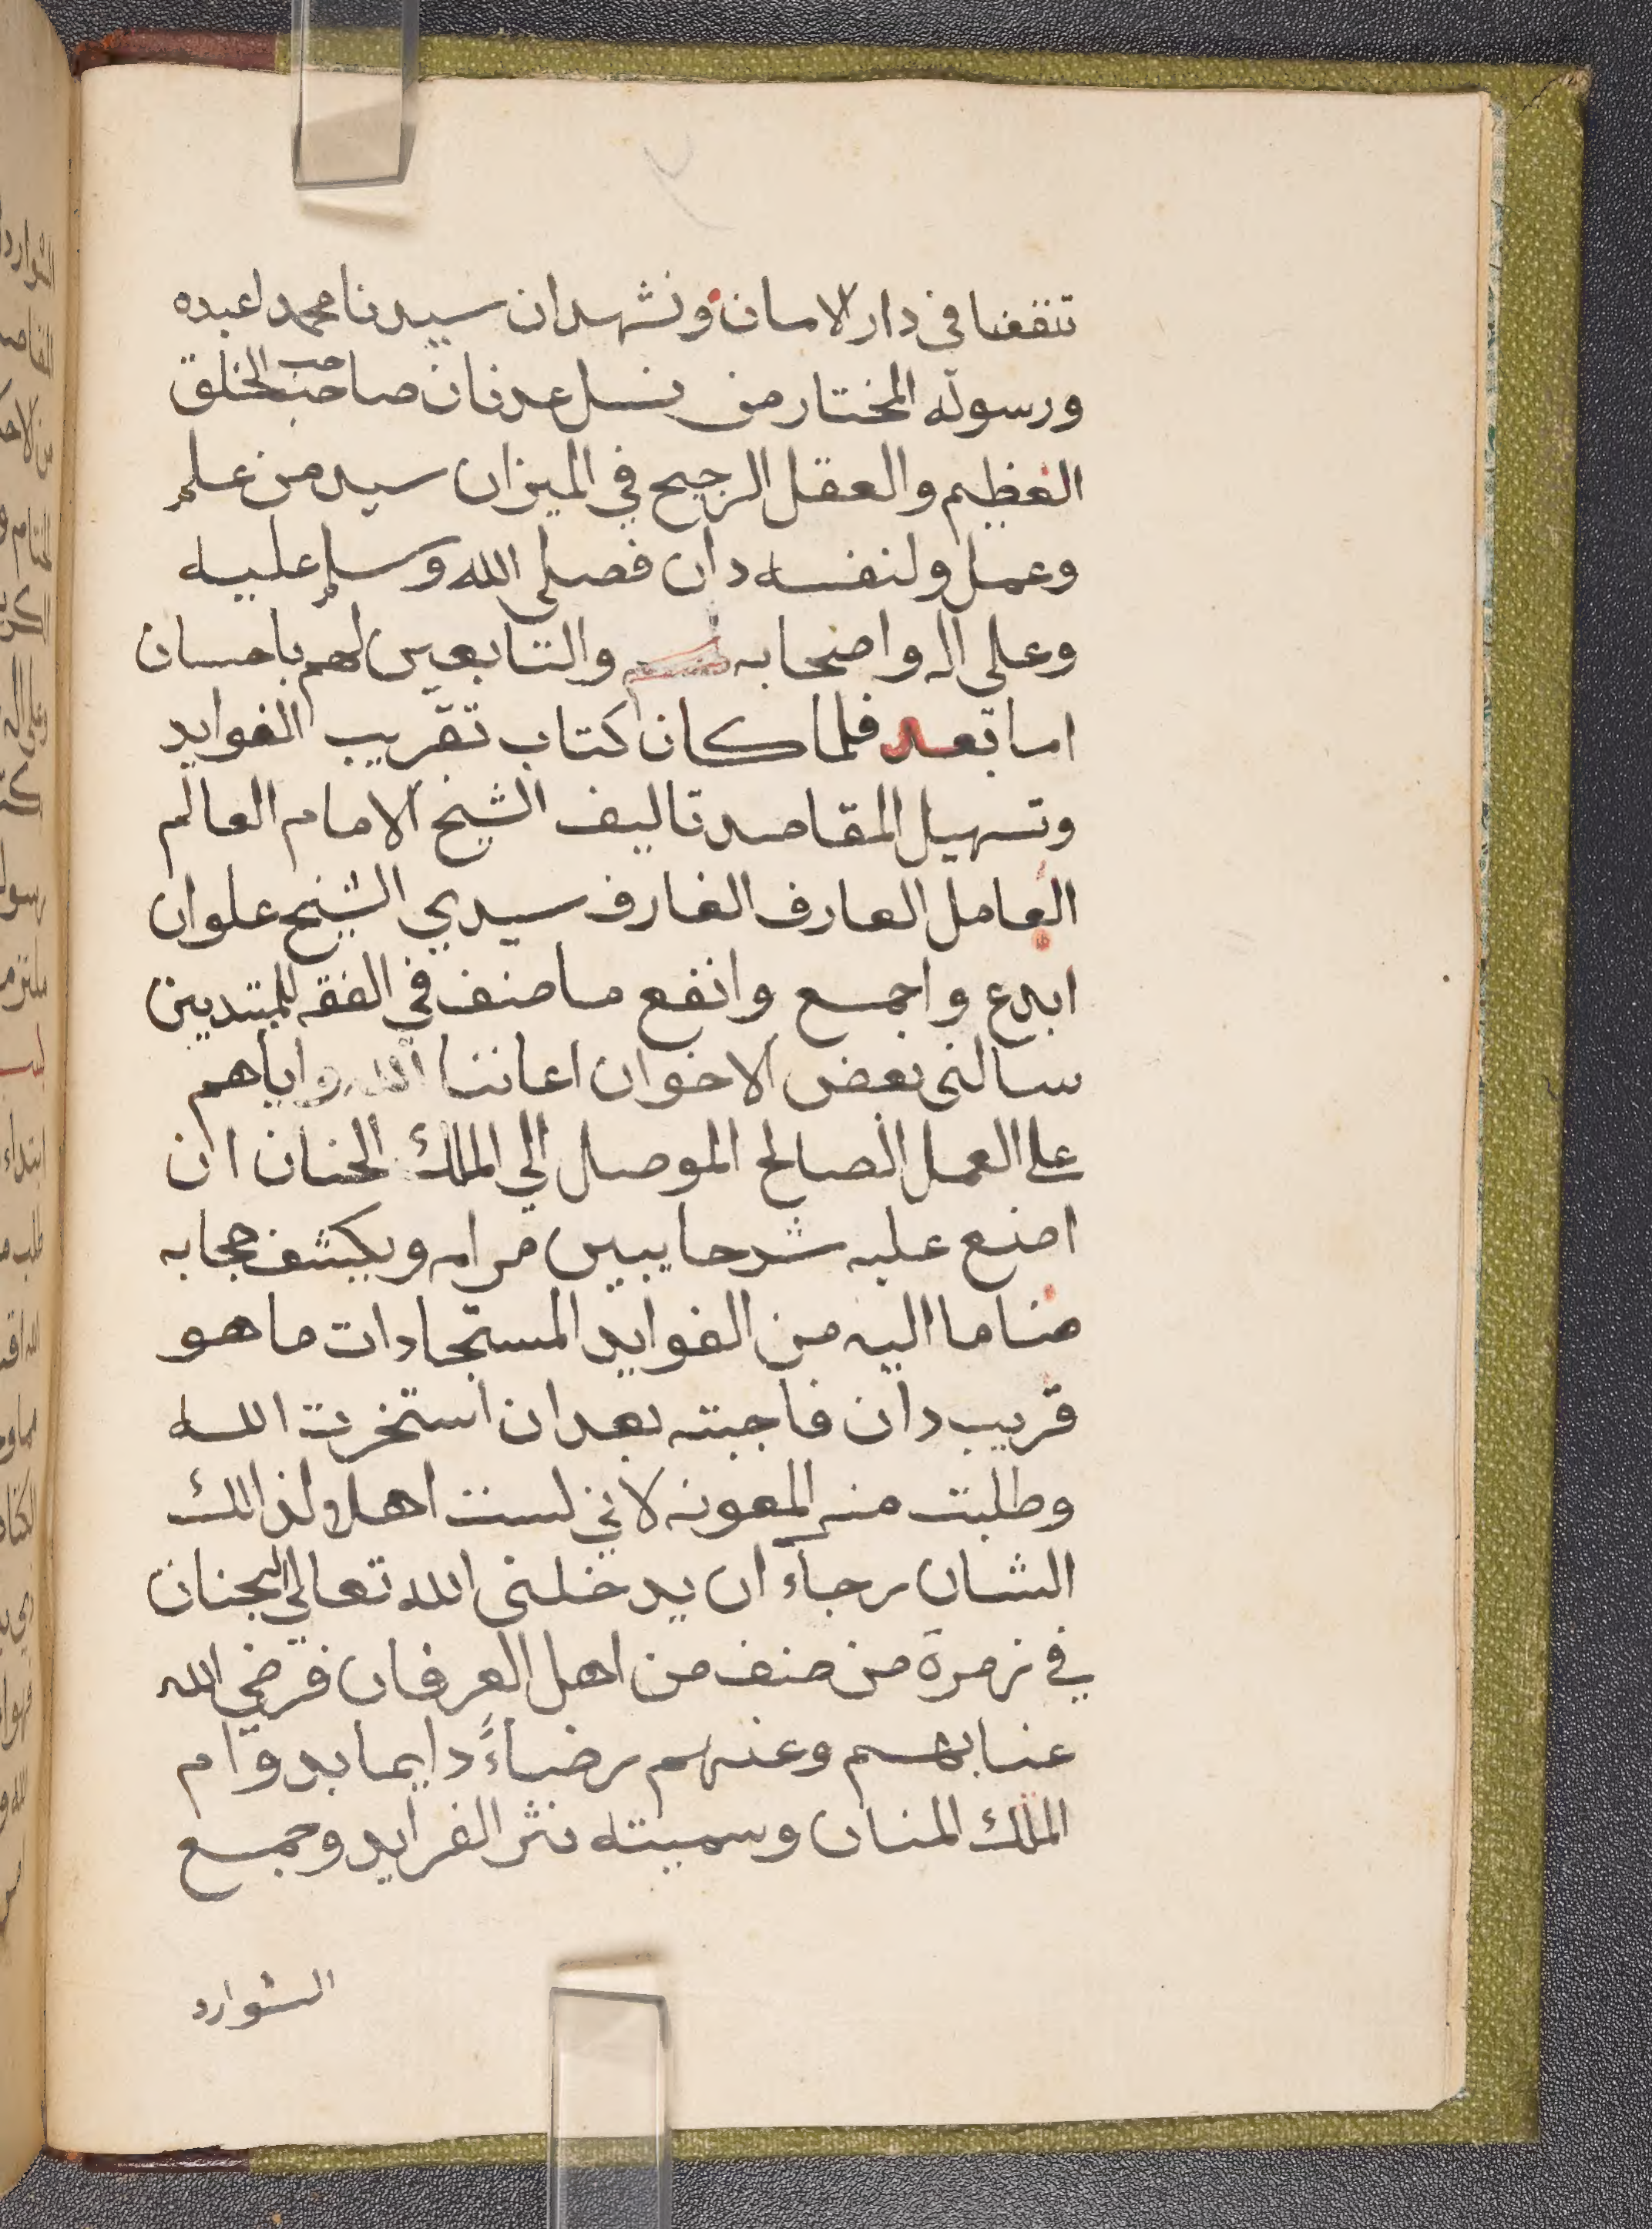 تنفعنا في دار الامان ونشهد ان سيدنا محمدا عبده
ورسوله المختار من نسل عدنان صاحب الخلق
العظيم والعقل الرجيح في الميزان سيد من علم
وعمل ولنفسه دان فصلي الله وسلم عليه
وعلي اله واصحابه والتابعين لهم باحسان
اما بعد فلما كان كتاب تقريب الفوايد
وتسهيل المقاصد تاليف الشيخ الامام العالم
العامل العارف الغارف سيدي الشيخ علوان
ابدع واجمع وانفع ما صنف في الفقه للمبتديين
سالني بعض الاخوان اعاننا الله واياهم
على العمل الصالح الموصل الي الملك الحنان ان
اضع عليه شرحا يبين مرامه ويكشف حجابه
ضاما اليه من الفوايد المستجادات ما هو
قريب دان فاجبته بعد ان استخرت الله
وطلبت منه المعونه لاني لست اهلا لذالك
الشان رجاء ان يدخلني الله تعالي الجنان
في زمرة من صنف من اهل العرفان فرضي الله
عنا بهم وعنهم رضاءً دايما بدوام
الملك المنان وسميته نثر الفرايد وجمع
الشوارد